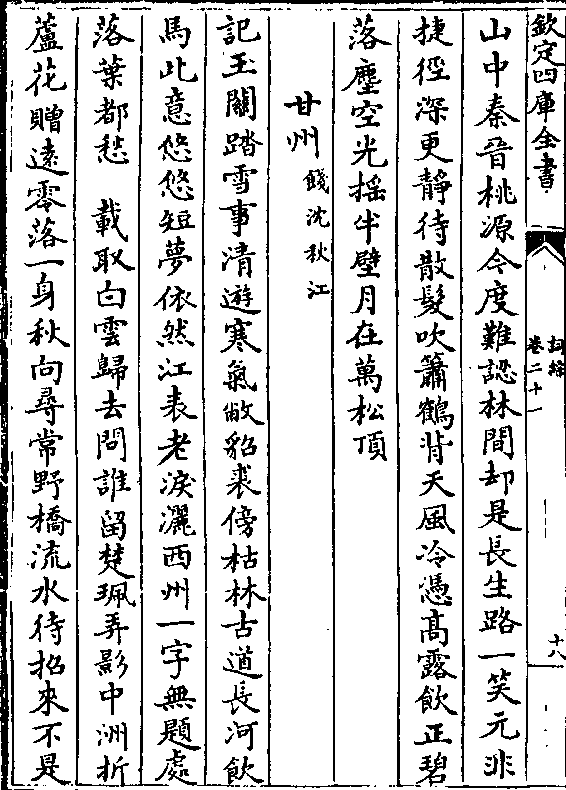 欽定四庫全書
詞綜
卷二十一
十八
山中秦晉桃源今度難認林間却是長生路一笑元非
捷徑深更靜待散髮吹簫鶴背天風冷憑髙露飲正碧
落塵空光揺半壁月在萬松頂
甘州 餞沈秋江
記玉關踏雪事清遊寒氣敝貂裘傍枯林古道長河飲
馬此意悠悠短夢依然江表老淚灑西州一字無題處
落葉都愁 載取白雲歸去問誰留楚珮弄影中洲折
蘆花贈遠零落一身秋向尋常野橋流水待招來不是